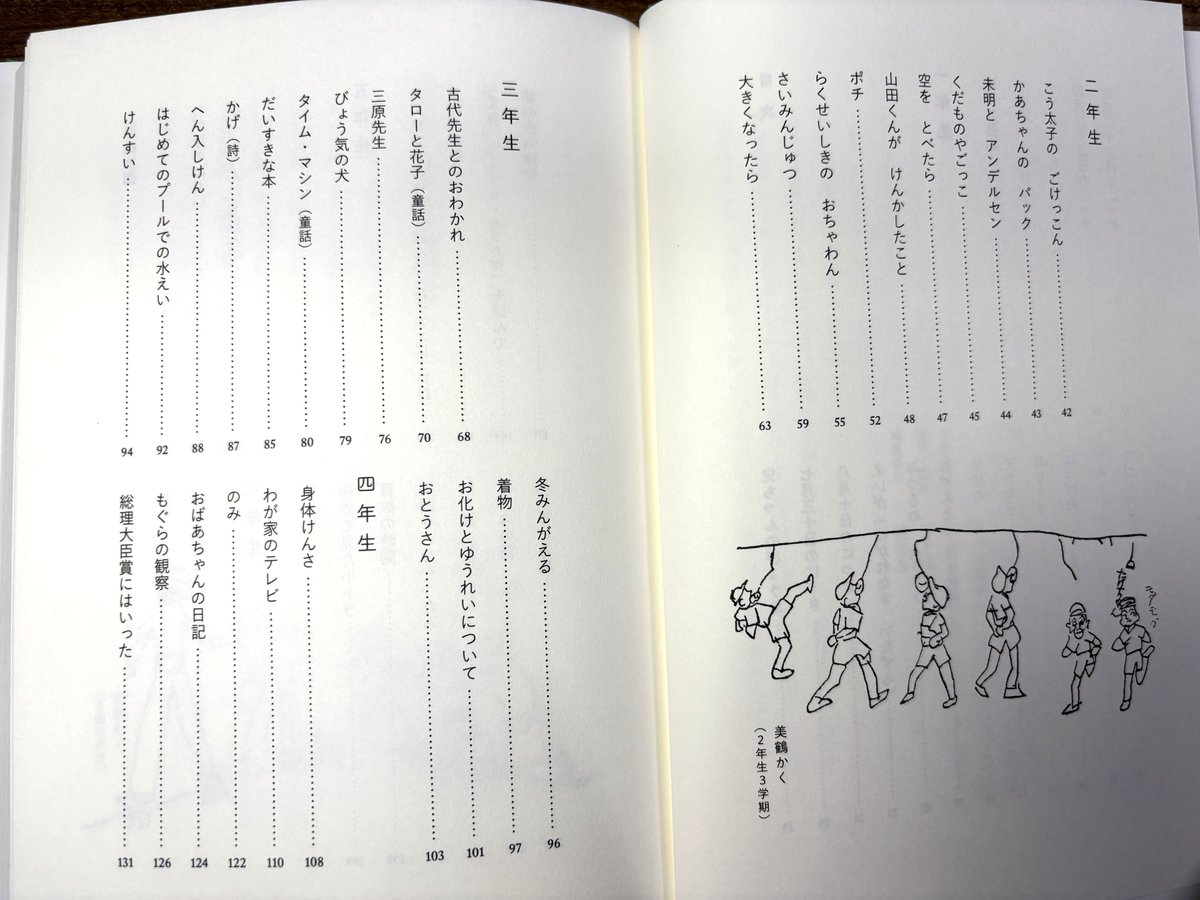 二年生
こう太子の ごけっこん 42
かあちゃんの パック 43
未明と アンデルセン 44
くだものやごっこ 45
空を とべたら 47
山田くんが けんかしたこと 48
ポチ 52
らくせいしきの おちゃわん 55
さいみんじゅつ 59
大きくなったら 63
美鶴かく
(2年生3学期)
三年生
古代先生とのおわかれ 68
タローと花子(童話) 70
三原先生 76
びょう気の犬 79
タイム・マシン(童話) 80
だいすきな本 85
かげ(詩) 87
へん入しけん 88
はじめてのプールでの水えい 92
けんすい 94
冬みんがえる 96
着物 97
お化けとゆうれいについて 101
おとうさん 103
四年生
身体けんさ 108
わが家のテレビ 110
のみ 122
おばあちゃんの日記 124
もぐらの観察 126
総理大臣賞にはいった 131